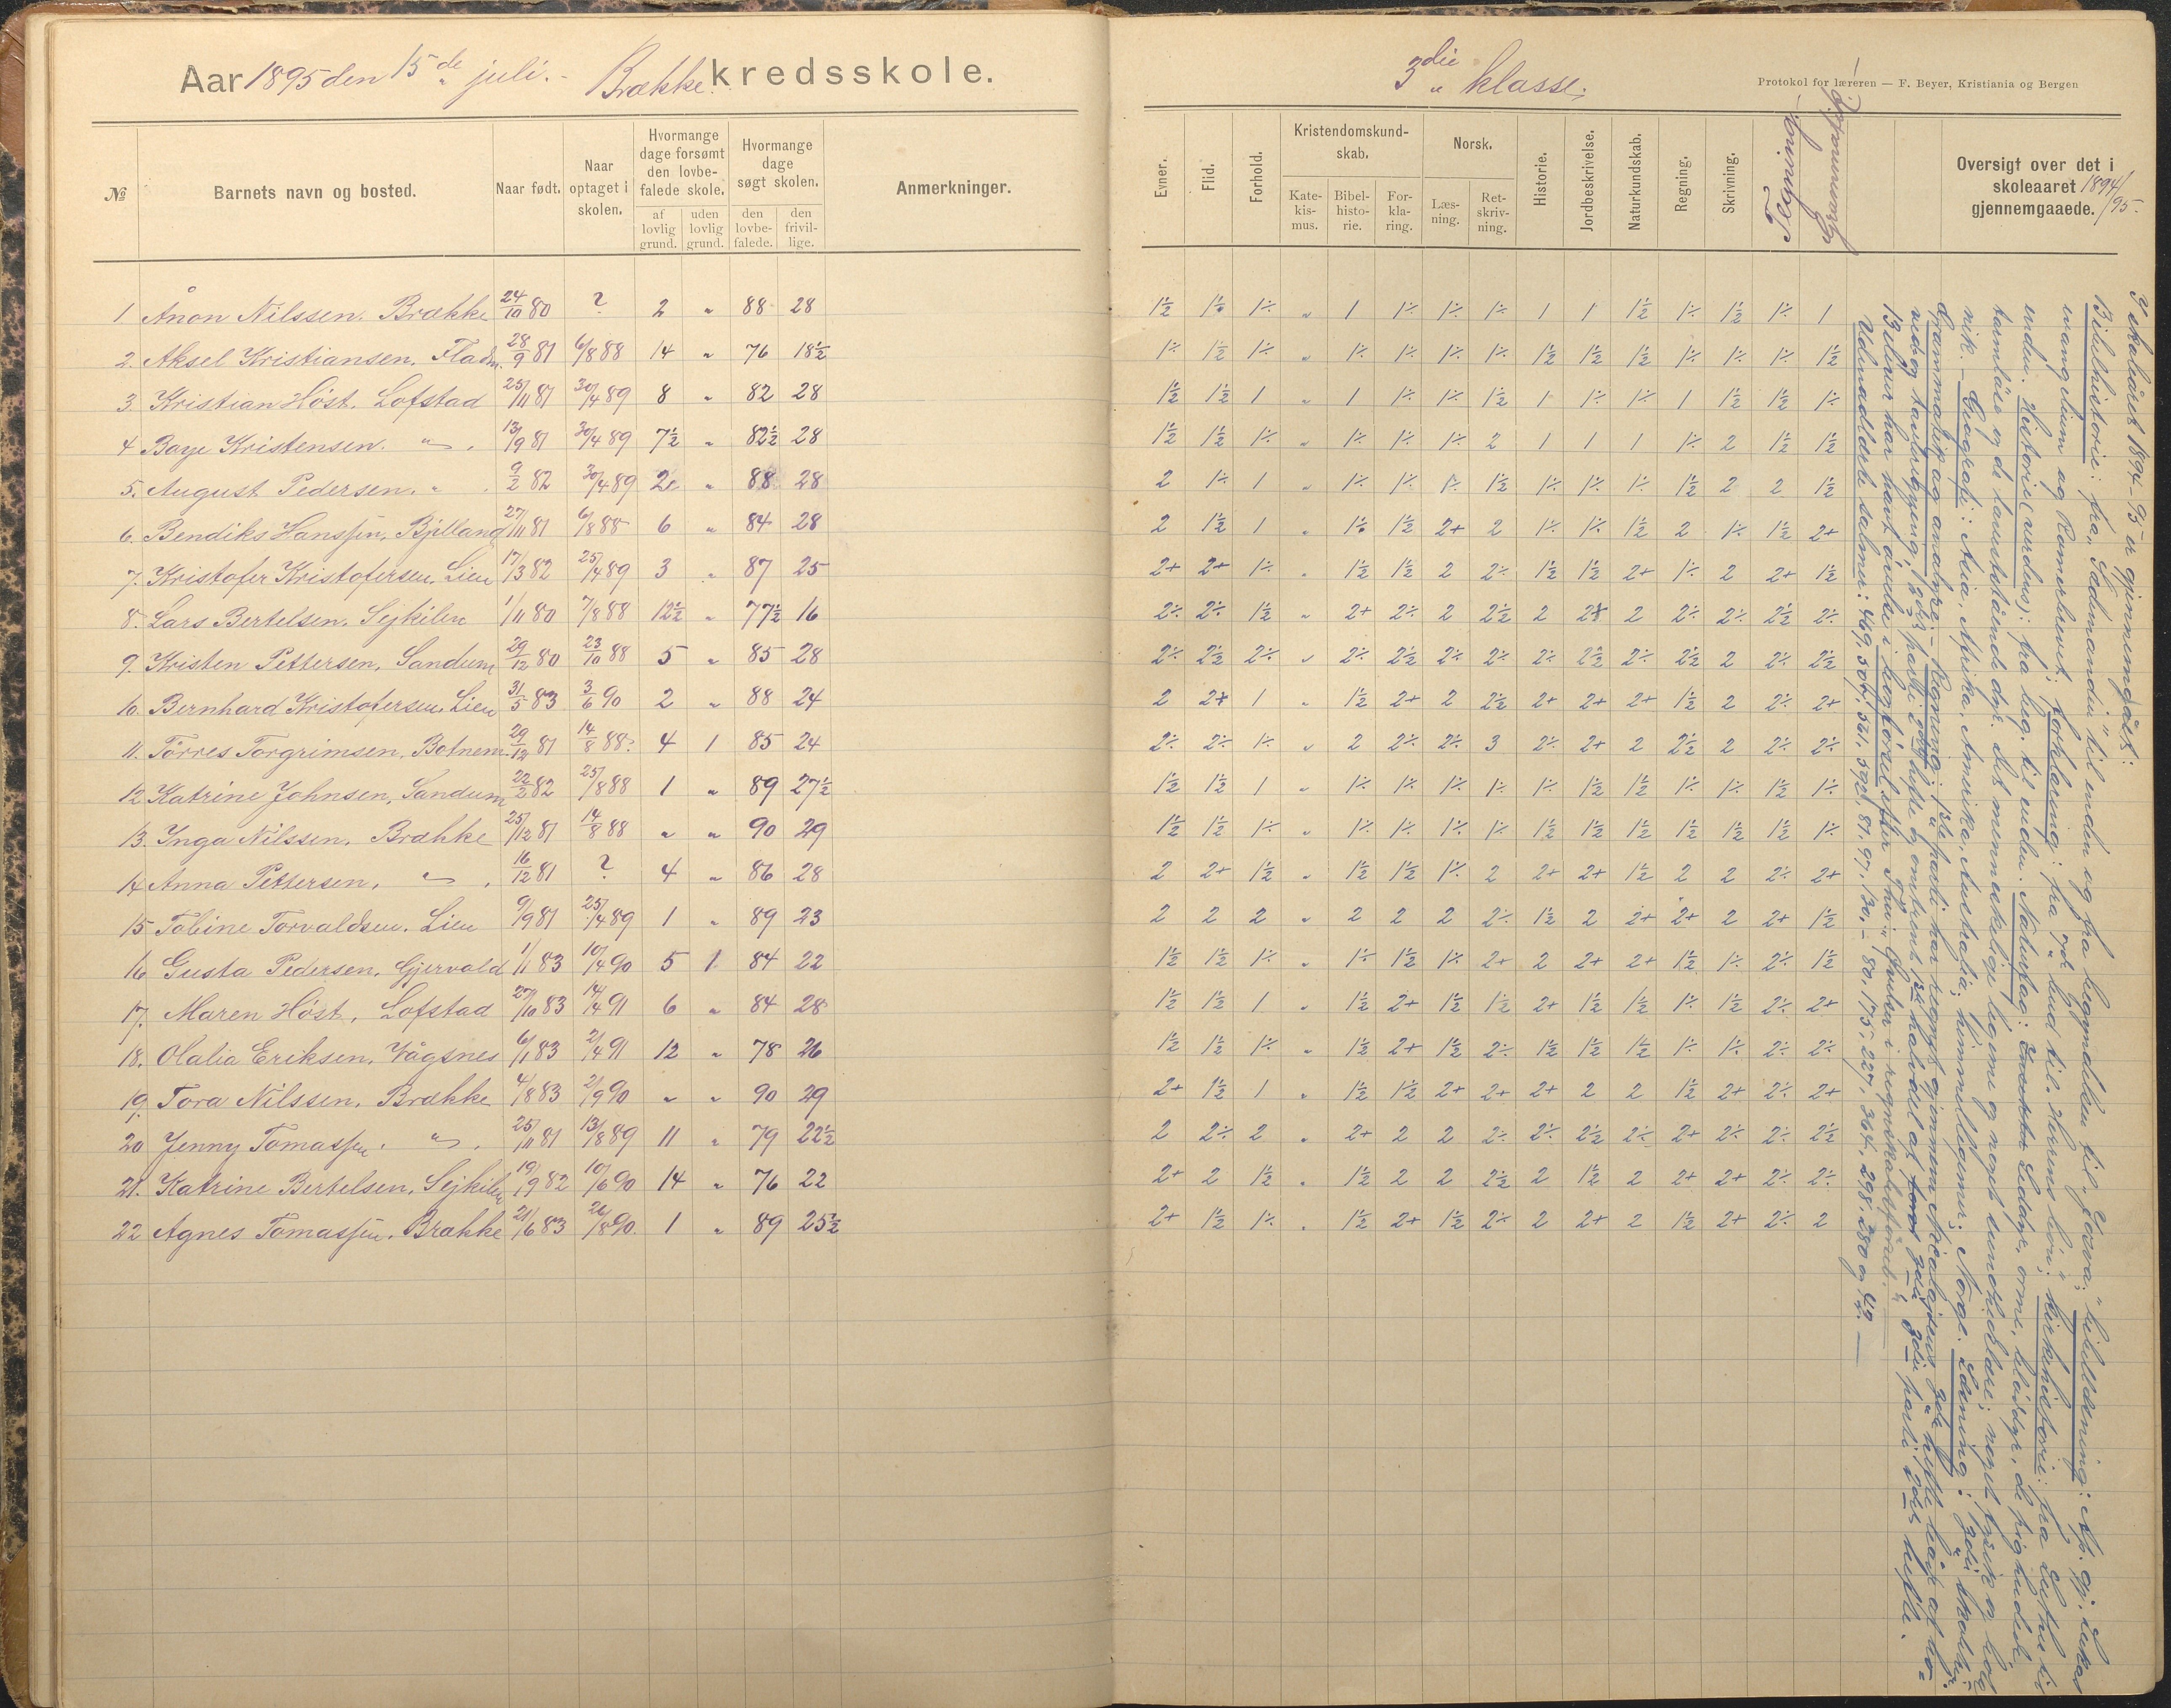 Aar 1895 den 15de juli. - Brække kredsskole.
№ Barnets navn og bosted. Naar født. Naar optaget i skolen. Hvormange dage forsømt den lovbefalede skole. af lovlig grund. uden lovlig grund. Hvormange dage søgt skolen. den lovbefalede. den frivillige. Anmerkninger.
1 Ånon Nilssen. Brække 24/10 80 ? 2 „ 88 28
2. Aksel Kristiansen. 28/9 81 6/8 88 14 „ 76 18½
3. Kristian Höst. Lofstad 25/11 81 30/4 89 8 „ 82 28
4 Boye Kristensen. „ 13/9 81 30/4 89 7½ „ 82½ 28
5. August Pedersen. „ 9/2 82 30/4 89 2 „ 88 28
6. Bendiks Hanssen, 27/11 81 6/8 88 6 „ 84 28
7. Kristofer Kristofersen, Lien 17/3 82 25/4 89 3 „ 87 25
8. Lars Bertelsen. Sejkilen 1/11 80 7/8 88 12½ „ 77½ 16
9. Kristen Pettersen, Sandum 29/12 80 23/10 88 5 „ 85 28
10. Bernhard Kristofersen, Lien 31/5 83 3/6 90 2 „ 88 24
11. Törres Torgrimsen, Botnem 29/12 81 14/8 88? 4 1 85 24
12 Katrine Johnsen, Sandum 22/2 82 25/8 88 1 „ 89 27½
13. Inga Nilssen. Brække 25/12 81 14/8 88 „ „ 90 29
14 Anna Pettersen, „ 16/12 81 ? 4 „ 86 28
15 Tobine Torvaldsen. Lien 9/9 81 25/4 89 1 „ 89 23
16 Gusta Pedersen, Gjervold 1/11 83 10/4 90 5 1 84 22
17. Maren Höst, Lofstad 27/10 83 14/4 91 6 „ 84 28
18. Olalia Eriksen. Vågsnes 6/1 83 2/4 91 12 „ 78 26
19. Tora Nilssen. Brække 4/8 83 2/9 90 „ „ 90 29
20 Jenny Tomassen. „ 25/11 81 13/8 89 11 „ 79 22½
21. Katrine Bertelsen, Sejkilen 19/9 82 10/6 90 14 „ 76 22
22 Agnes Tomassen. Brække 21/6 83 26/8 90. 1 „ 89 25½
3die klasse.
Protokol for læreren — F. Beyer, Kristiania og Bergen
Evner. Flid. Forhold. Kristendomskundskab. Katekismus. Bibelhistorie. Forklaring. Norsk. Læsning. Retskrivning. Historie. Jordbeskrivelse. Naturkundskab. Regning. Skrivning. Tegning.
Oversigt over det i skoleaaret 1894/95. gjennemgaaede.
1½ 1÷ 1÷ „ 1 1÷ 1÷ 1÷ 1 1 1½ 1÷ 1½ 1÷ 1
1÷ 1½ 1÷ „ 1÷ 1÷ 1÷ 1÷ 1½ 1½ 1½ 1÷ 1÷ 1÷ 1½
1½ 1½ 1 „ 1 1÷ 1÷ 1½ 1 1÷ 1÷ 1 1½ 1½ 1÷
1½ 1½ 1÷ „ 1÷ 1÷ 1÷ 2 1 1 1 1÷ 2 1½ 1½
2 1÷ 1 „ 1÷ 1÷ 1÷ 1½ 1÷ 1÷ 1÷ 1½ 2 2 1½
2 1½ 1 „ 1÷ 1½ 2+ 2 1÷ 1÷ 1½ 2 1÷ 1½ 2+
2+ 2+ 1÷ „ 1½ 1½ 2 2÷ 1½ 1½ 2+ 1÷ 2 2+ 1½
2÷ 2÷ 1½ „ 2+ 2÷ 2 2½ 2 2+ 2 2÷ 2÷ 2½ 2÷
2÷ 2½ 2÷ „ 2÷ 2½ 2÷ 2÷ 2÷ 2½ 2÷ 2½ 2 2÷ 2½
2 2+ 1 „ 1½ 2+ 2 2½ 2+ 2+ 2+ 1½ 2 2÷ 2+
2÷ 2÷ 1÷ „ 2 2÷ 2÷ 3 2÷ 2+ 2 2½ 2 2÷ 2÷
1½ 1½ 1 „ 1÷ 1÷ 1÷ 1÷ 1÷ 1½ 1½ 1÷ 1÷ 1½ 1÷
1½ 1½ 1÷ „ 1÷ 1÷ 1÷ 1÷ 1½ 1½ 1½ 1½ 1½ 1½ 1÷
2 2+ 1½ „ 1½ 1½ 1÷ 2 2+ 2+ 1½ 2 2 2÷ 2+
2 2 2 „ 2 2 2 2÷ 1½ 2 2+ 2+ 2 2+ 1½
1½ 1½ 1÷ „ 1÷ 1½ 1÷ 2+ 2 2+ 2+ 1½ 1÷ 2÷ 1½
1½ 1½ 1 „ 1½ 2+ 1½ 1½ 2+ 1½ 1½ 1÷ 1½ 2÷ 2+
1½ 1½ 1÷ „ 1½ 2+ 1½ 2÷ 1½ 1½ 1½ 1÷ 1÷ 2÷ 2÷
2+ 1½ 1 „ 1½ 1½ 2+ 2+ 2+ 2 2 1½ 2+ 2÷ 2+
2 2÷ 2 „ 2+ 2 2 2÷ 2÷ 2½ 2÷ 2+ 2÷ 2÷ 2½
2+ 2 1½ „ 1½ 2 2 2½ 2 1½ 2 2+ 2+ 2÷ 2÷
2+ 1½ 1÷ „ 1½ 2+ 1½ 2÷ 2 2+ 2 1½ 2+ 2÷ 2
I skoleåret 1894-95 er gjennemgået:
Bibelhistorie: fra „Sædmanden" til enden og fra begyndelsen til „Josva;" bibellæsning:
evangelium og Romerbrevet; forklaring: fra 7de bud til „Herrens bön;" kirkehistorie: fra
enden. Historie (verdens): fra beg. til enden. Naturfag: Leddyr, orme, blöddyr,
tamlöse og de laveststående dyr. Det menneskelige legeme og noget sundhedslære; noget fysik og
nik. - Geografi: Asia, Afrika, Amerika, Australia; himmellegemer; Norge. Læsning: 3die
Grammatik og analyse. - Regning: 1ste parti har regnet gjennem Nicolaysens 3die hefte
Udenadlærte salmer: 469, 504, 521, 592, 87, 97, 130, - 80, 175, 227, 364, 298, 280 og 42. —